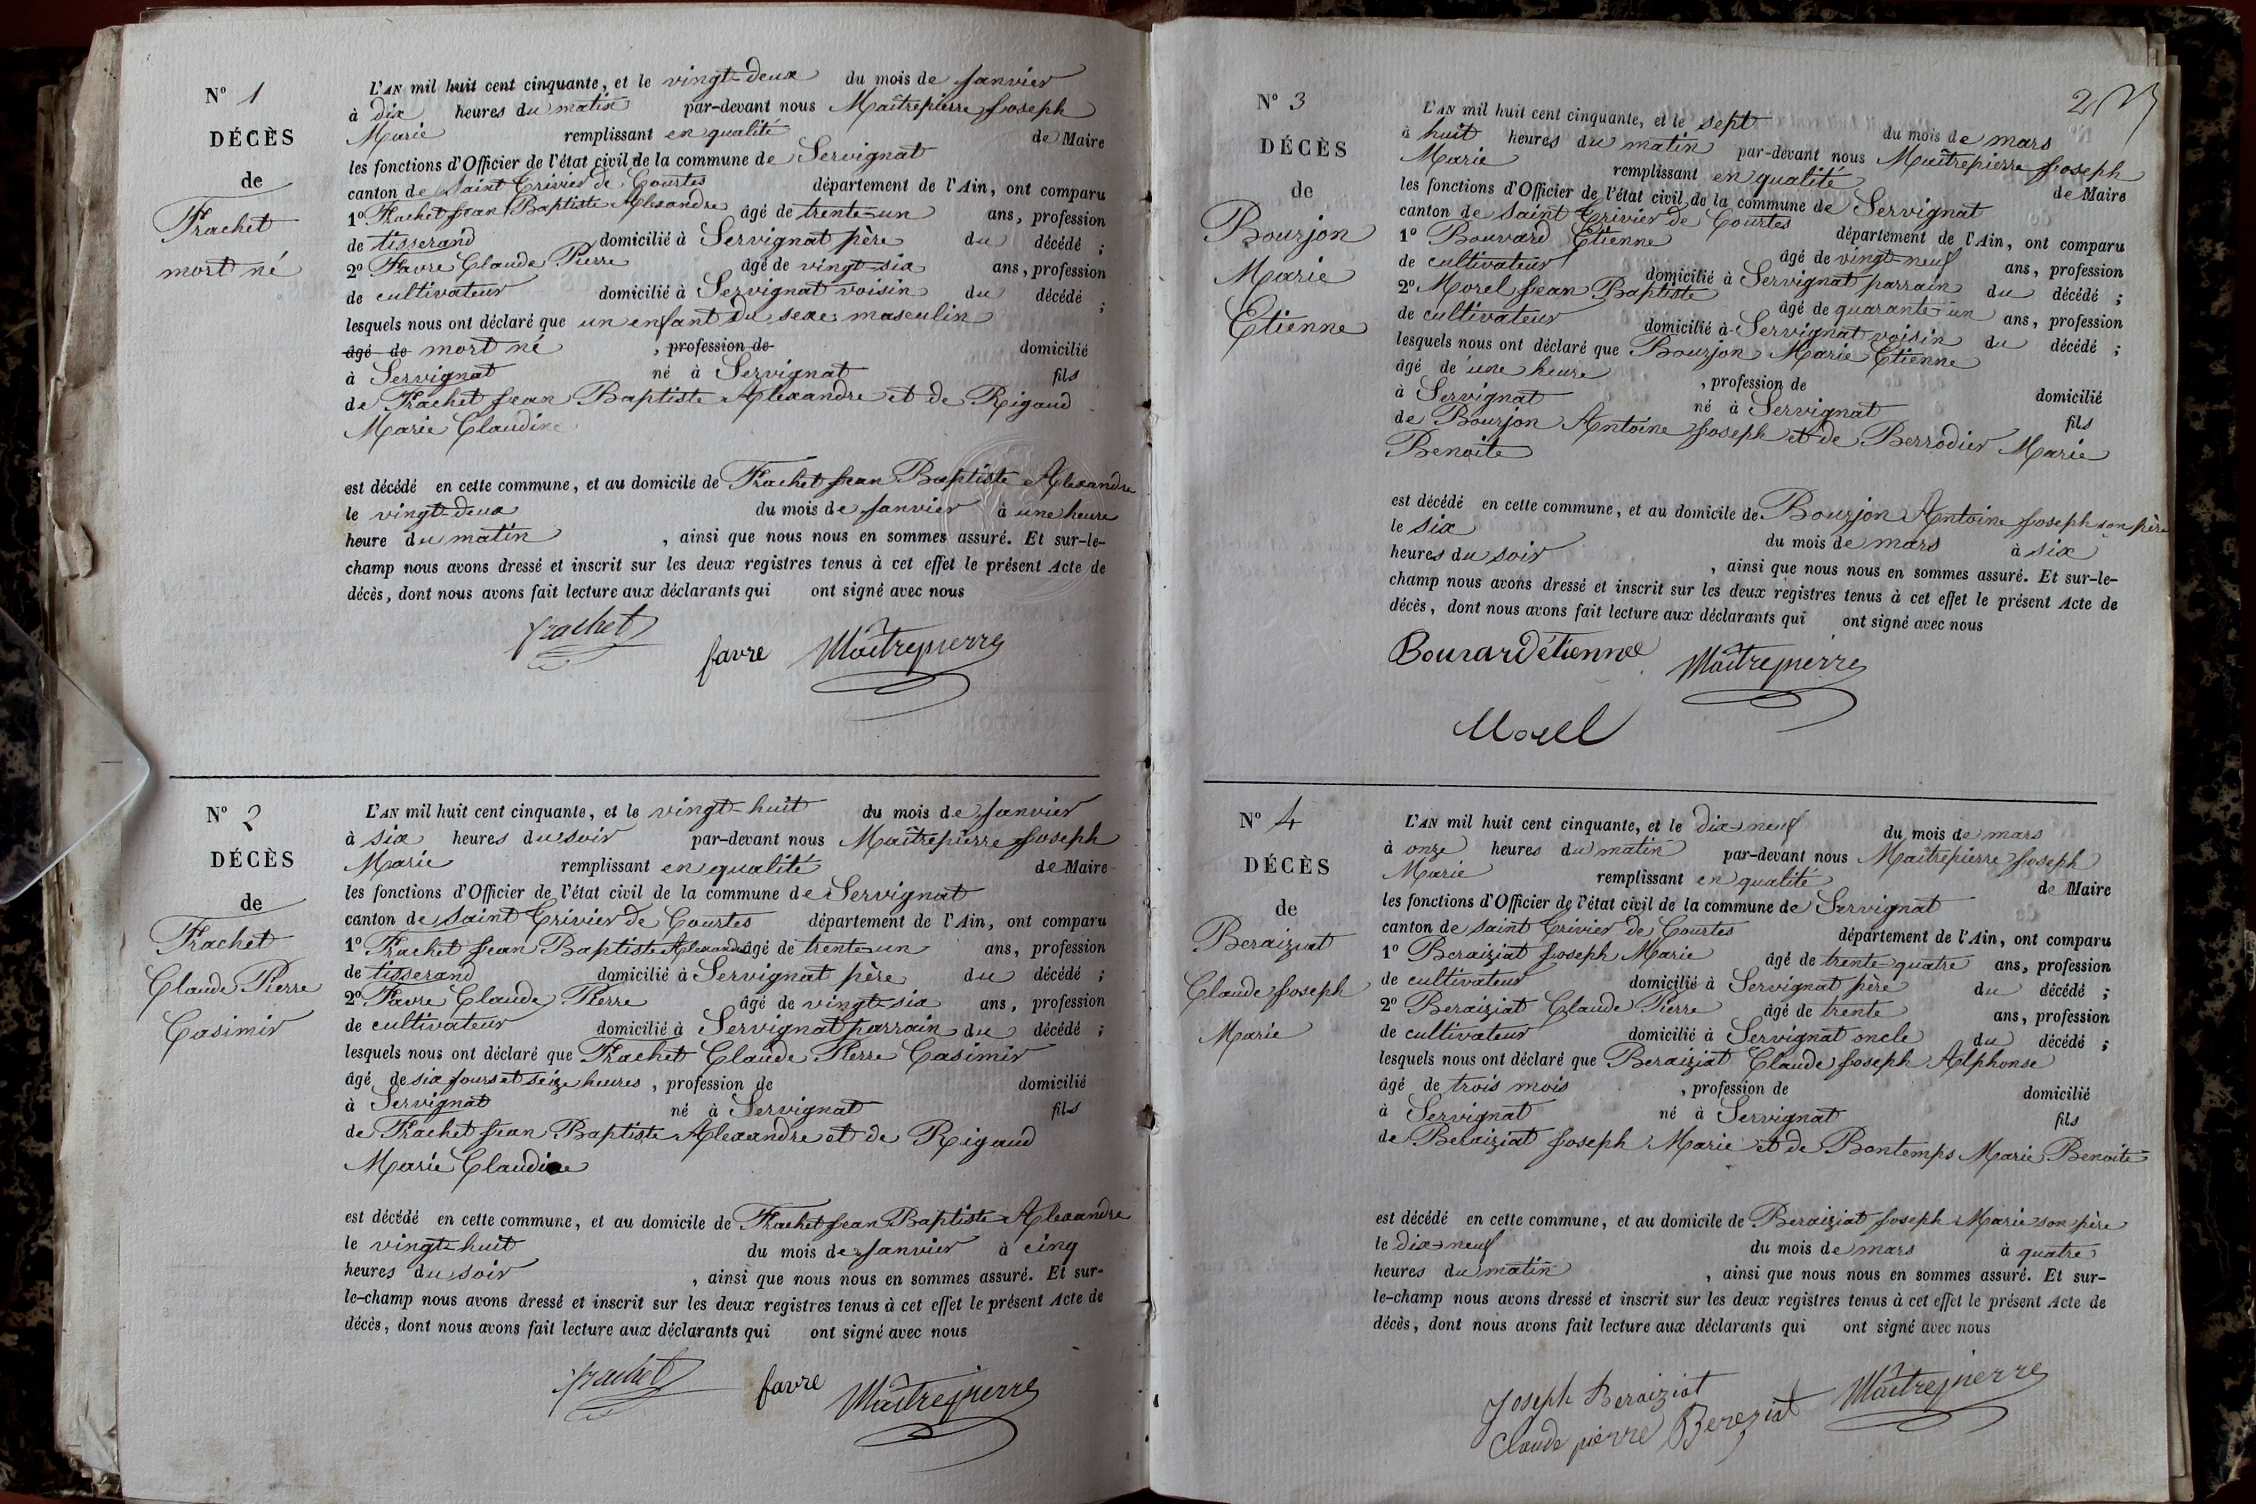 N° 1
DÉCÈS
de
Frachet
mort né
L'AN mil huit cent cinquante, et le vingt-deux du mois de Janvier
à dix heures du matin par-devant nous Maîtrepierre Joseph
Marie remplissant en qualité de Maire
les fonctions d'Officier de l'état civil de la commune de Servignat
canton de Saint Trivier de Courtes département de l'Ain, ont comparu
1° Frachet Jean Baptiste Alexandre âgé de trente-un ans, profession
de tisserand domicilié à Servignat père du décédé ;
2° Favre Claude Pierre âgé de vingt-six ans, profession
de cultivateur domicilié à Servignat voisin du décédé ;
lesquels nous ont déclaré que un enfant du sexe masculin
âgé de mort né , profession de domicilié
à Servignat né à Servignat fils
de Frachet Jean Baptiste Alexandre et de Rigaud
Marie Claudine
est décédé en cette commune, et au domicile de Frachet Jean Baptiste Alexandre
le vingt-deux du mois de Janvier à une heure
heure du matin , ainsi que nous nous en sommes assuré. Et sur-le-
champ nous avons dressé et inscrit sur les deux registres tenus à cet effet le présent Acte de
décès, dont nous avons fait lecture aux déclarants qui ont signé avec nous
frachet favre Maîtrepierre
N° 2
DÉCÈS
de
Frachet
Claude Pierre
Casimir
L'AN mil huit cent cinquante, et le vingt-huit du mois de Janvier
à six heures du soir par-devant nous Maîtrepierre Joseph
Marie remplissant en qualité de Maire
les fonctions d'Officier de l'état civil de la commune de Servignat
canton de Saint Trivier de Courtes département de l'Ain, ont comparu
1° Frachet Jean Baptiste Alexandre âgé de trente-un ans, profession
de tisserand domicilié à Servignat père du décédé ;
2° Favre Claude Pierre âgé de vingt-six ans, profession
de cultivateur domicilié à Servignat parrain du décédé ;
lesquels nous ont déclaré que Frachet Claude Pierre Casimir
âgé de six jours et seize heures , profession de domicilié
à Servignat né à Servignat fils
de Frachet Jean Baptiste Alexandre et de Rigaud
Marie Claudine
est décédé en cette commune, et au domicile de Frachet Jean Baptiste Alexandre
le vingt-huit du mois de Janvier à cinq
heures du soir , ainsi que nous nous en sommes assuré. Et sur-
le-champ nous avons dressé et inscrit sur les deux registres tenus à cet effet le présent Acte de
décès, dont nous avons fait lecture aux déclarants qui ont signé avec nous
frachet favre Maîtrepierre
2
N° 3
DÉCÈS
de
Bourjon
Marie
Etienne
L'AN mil huit cent cinquante, et le sept du mois de mars
à huit heures du matin par-devant nous Maîtrepierre Joseph
Marie remplissant en qualité de Maire
les fonctions d'Officier de l'état civil de la commune de Servignat
canton de Saint Trivier de Courtes département de l'Ain, ont comparu
1° Bouvard Etienne âgé de vingt-neuf ans, profession
de cultivateur domicilié à Servignat parrain du décédé ;
2° Morel Jean Baptiste âgé de quarante-un ans, profession
de cultivateur domicilié à Servignat voisin du décédé ;
lesquels nous ont déclaré que Bourjon Marie Etienne
âgé de une heure , profession de domicilié
à Servignat né à Servignat fils
de Bourjon Antoine Joseph et de Berrodier Marie
Benoite
est décédé en cette commune, et au domicile de Bourjon Antoine Joseph son père
le six du mois de mars à six
heures du soir , ainsi que nous nous en sommes assuré. Et sur-le-
champ nous avons dressé et inscrit sur les deux registres tenus à cet effet le présent Acte de
décès, dont nous avons fait lecture aux déclarants qui ont signé avec nous
Bouvard étienne Maîtrepierre
Morel
N° 4
DÉCÈS
de
Beraiziat
Claude Joseph
Marie
L'AN mil huit cent cinquante, et le dix-neuf du mois de mars
à onze heures du matin par-devant nous Maîtrepierre Joseph
Marie remplissant en qualité de Maire
les fonctions d'Officier de l'état civil de la commune de Servignat
canton de Saint Trivier de Courtes département de l'Ain, ont comparu
1° Beraiziat Joseph Marie âgé de trente-quatre ans, profession
de cultivateur domicilié à Servignat père du décédé ;
2° Beraiziat Claude Pierre âgé de trente ans, profession
de cultivateur domicilié à Servignat oncle du décédé ;
lesquels nous ont déclaré que Beraiziat Claude Joseph Alphonse
âgé de trois mois , profession de domicilié
à Servignat né à Servignat fils
de Beraiziat Joseph Marie et de Bontemps Marie Benoite
est décédé en cette commune, et au domicile de Beraiziat Joseph Marie son père
le dix-neuf du mois de mars à quatre
heures du matin , ainsi que nous nous en sommes assuré. Et sur-
le-champ nous avons dressé et inscrit sur les deux registres tenus à cet effet le présent Acte de
décès, dont nous avons fait lecture aux déclarants qui ont signé avec nous
Joseph Beraiziat Maîtrepierre
Claude pierre Bereziat